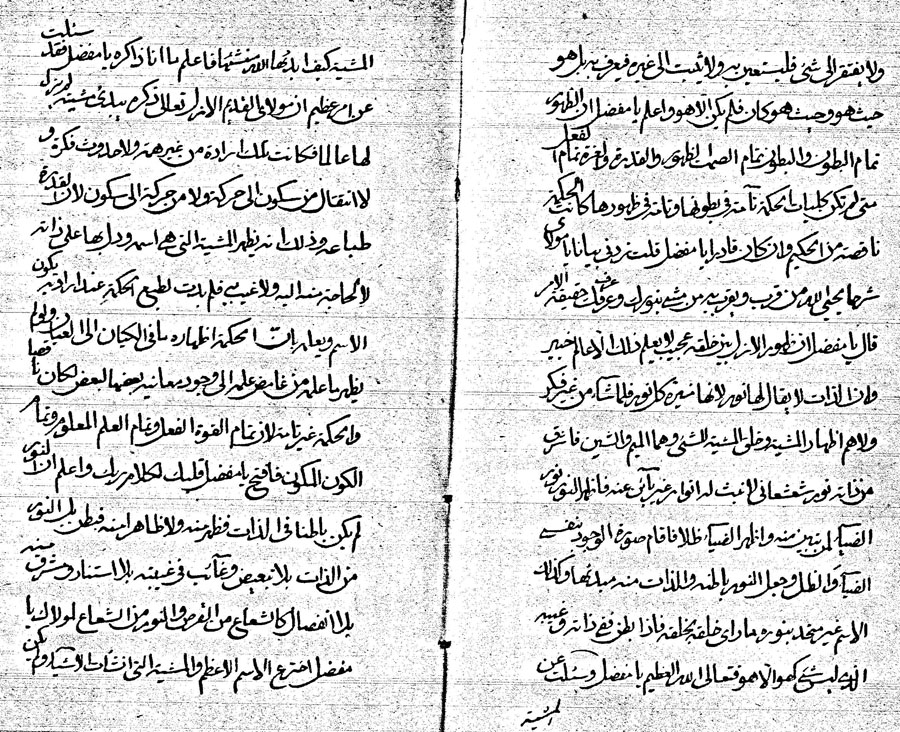 ولا يفتقر الى شئ فليستعين به ولا يثبت الى غيره فيعرف به بل هو
حيث هو وحيث هو كان فلم يكن الا هو واعلم يا مفضل ان الظهور
تمام البطون والبطون تمام الصمت الظهور والقدرة والعزة تمام الفعل
متى لم تكن كليات الحكمة تامة في بطونها وتامة في ظهورها كانت الحكمة
ناقصة من الحكيم وان كان قادرا يا مفضل قلت زدني بيانا يا مولاي
شرحا يحيي الله من قرب ويقرب به من مشى بنورك وعرفك حقيقة الامر
قال يا مفضل ان ظهور الازل بين خلقه عجيب لا يعلم ذلك الا عالم خبير
وان الذات لا يقال لها نور لانها منيرة كل نور فلما شاء من غير فكر
ولا هم اظهار المشية وخلق المشية للشئ وهما الميم والشين فاشرق
من ذاته نور شعشعاني لا تثبت له انوار غير بائن عنه فاظهر النور نور
الضياء لم يتبين منه واظهر الضياء ظلا فاقام صورة الوجود بنفسه
الضياء والظل وجعل النور باطنه والذات منه مبدئها وكذلك
الاسم غير متحد بنوره ما راى خلقه بخلقه فاذا بطن ففي ذاته وغيبه
الذي ليس شئ كهو الا هو فتعالى الله العظيم يا مفضل وسئلت عن
المشية
المشية كيف ابداها الله منشئها فاعلم ما انا ذاكره يا مفضل فقد سئلت
عن امر عظيم ان مولاي القديم الازل تعالى ذكره يبدئ مشيته لم يزل
لها عالما فكانت تلك ارادة من غير همة ولا حدوث فكرة و
لا انتقال من سكون الى حركة ولا من حركة الى سكون لان القدرة
طباعه وذلك انه يظهر المشية التي هي اسمه ودل بها على ذاته
لا لحاجة منه اليه ولا غيب به فلما بدت بطبع الحكمة عند ارادته يكون
الاسم ويعلم بان الحكمة اظهار ما في الكيان الى العيان ولو لم
يظهر ما علمه من غامض علمه الى وجود معاينة بعضها لبعض لكان ناقصا
والحكمة غير تامة لان تمام القوة الفعل وتمام العلم المعلوم وتمام
الكون المكون فافتح يا مفضل قلبك لكلام ربك واعلم ان النور
لم يكن باطنا في الذات فظهر منه ولا ظاهرا منه فبطن بل النور
من الذات بلا تبعيض وغائب في غيبته بلا استتار ومشرق منه
بلا انفصال كالشعاع من القرص والنور من الشعاع لمولاك يا
مفضل اخترع الاسم الاعظم والمشية التي انشات الاشياء ولم يكن